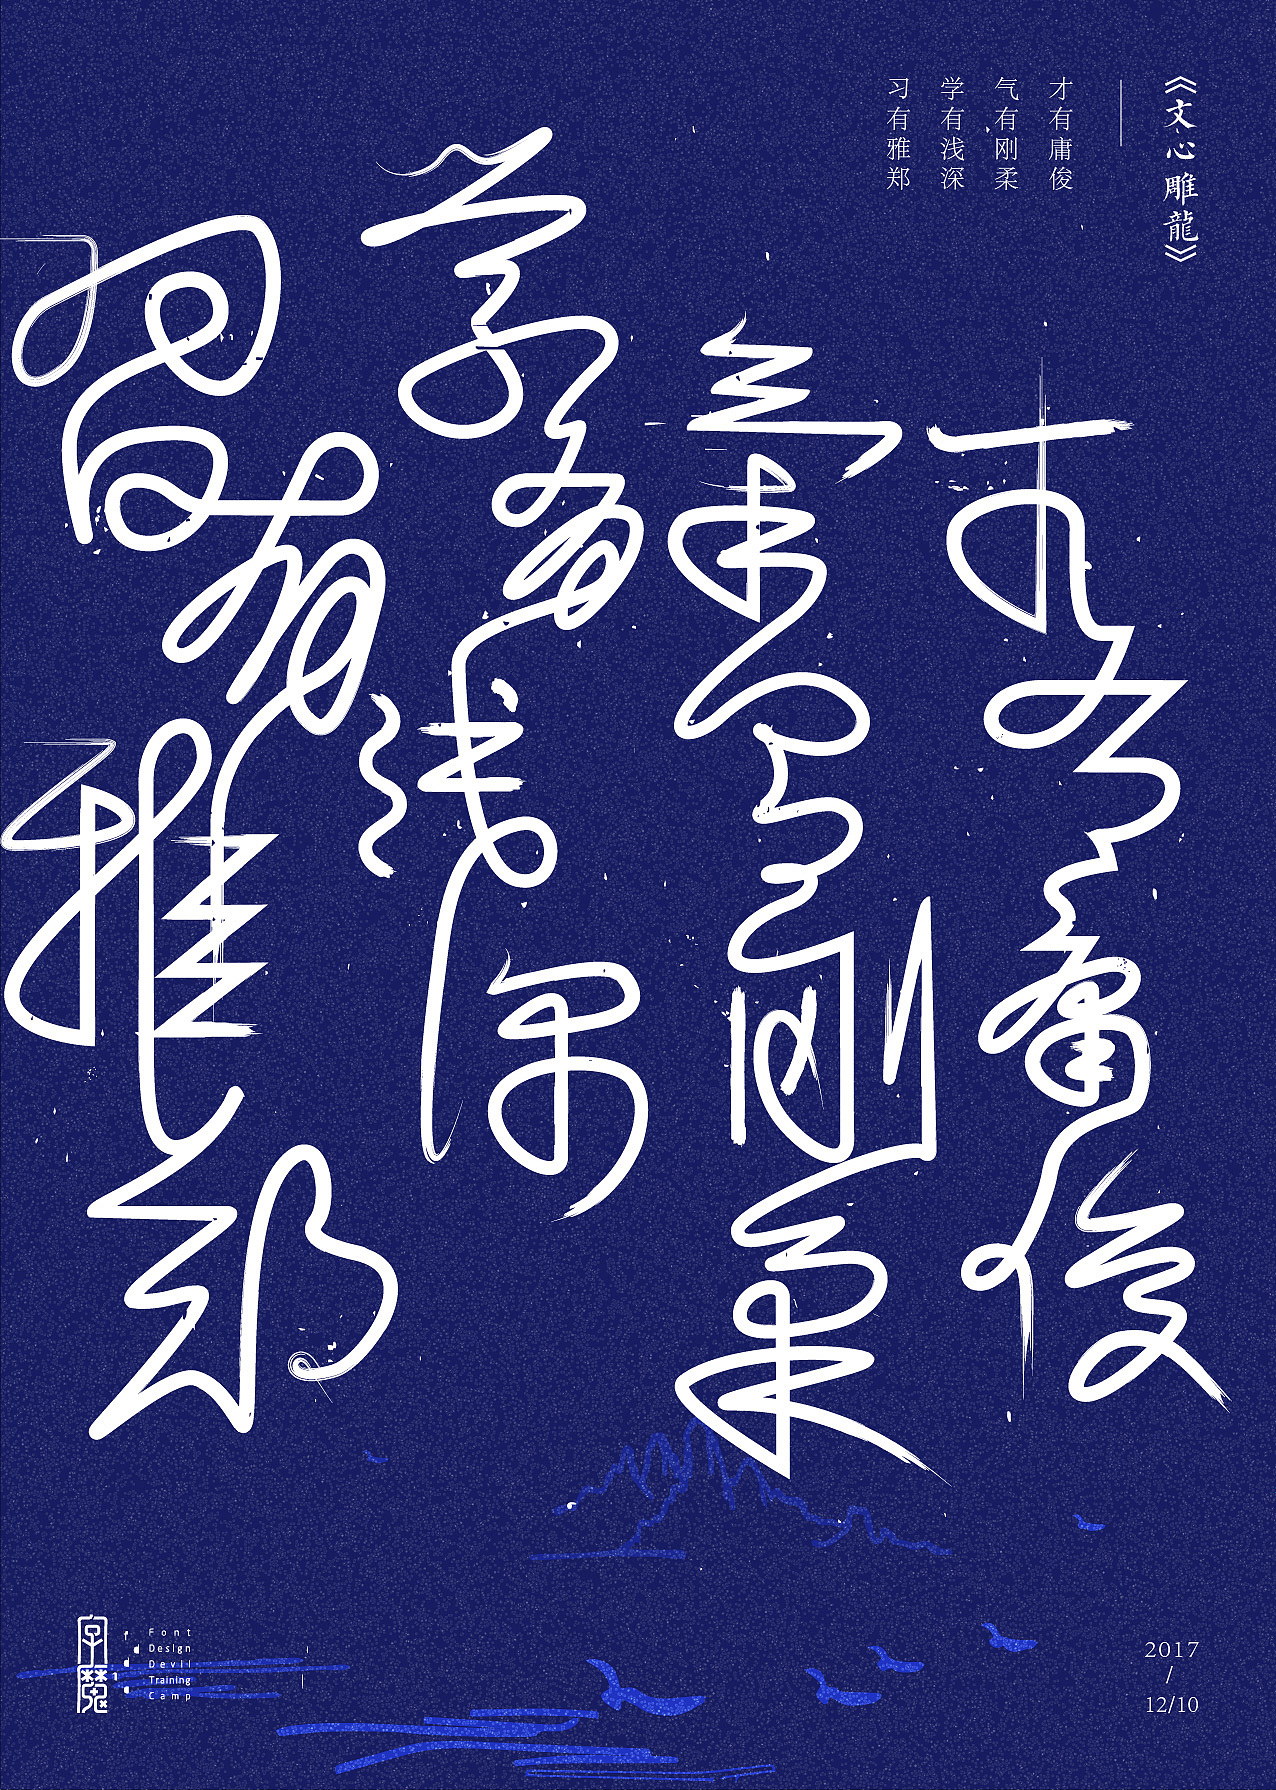 《文心雕龍》
才有庸俊
气有刚柔
学有浅深
习有雅郑
才有庸俊
气有刚柔
学有浅深
习有雅郑
字魔
Font
Design
Devil
Training
Camp
2017
/
12/10